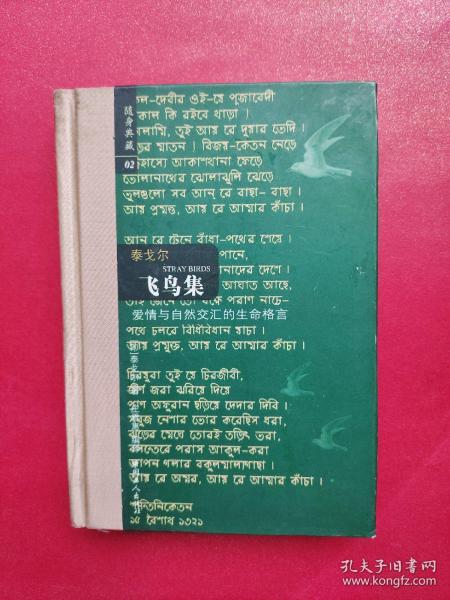 কল-দেবীর ওই-যে পূজাবেদী
কাল কি রইবে খাড়া ।
আয় রে দুয়ার ভেদি
মাতন । বিজয়-কেতন নেড়ে
আকাশখানা ফেড়ে
ভোলানাথের ঝোলাঝুলি ঝেড়ে
ভুলগুলো সব আন্ রে বাছা- বাছা ।
আয় প্রমত্ত, আয় রে আমার কাঁচা ।
আন্ রে টেনে বাঁধা-পথের শেষে ।
পানে,
নাদের দেশে ।
আঘাত আছে,
তাই জেনে তো বক্ষে পরাণ নাচে-
পথে চলার বিধিবিধান যাচা ।
আয় প্রমুক্ত, আয় রে আমার কাঁচা ।
চিরযুবা তুই যে চিরজীবী,
জীর্ণ জরা ঝরিয়ে দিয়ে
প্রাণ অফুরান ছড়িয়ে দেদার দিবি ।
সবুজ নেশায় ভোর করেছিস ধরা,
ঝড়ের মেঘে তোরই তড়িৎ ভরা,
বসন্তেরে পরাস আকুল-করা
আপন গলার বকুলমাল্যগাছা ।
আয় রে অমর, আয় রে আমার কাঁচা ।
শান্তিনিকেতন
১৫ বৈশাখ ১৩২১
随身典藏
02
泰戈尔
STRAY BIRDS
飞鸟集
爱情与自然交汇的生命格言
孔夫子旧书网
www.kongfz.com